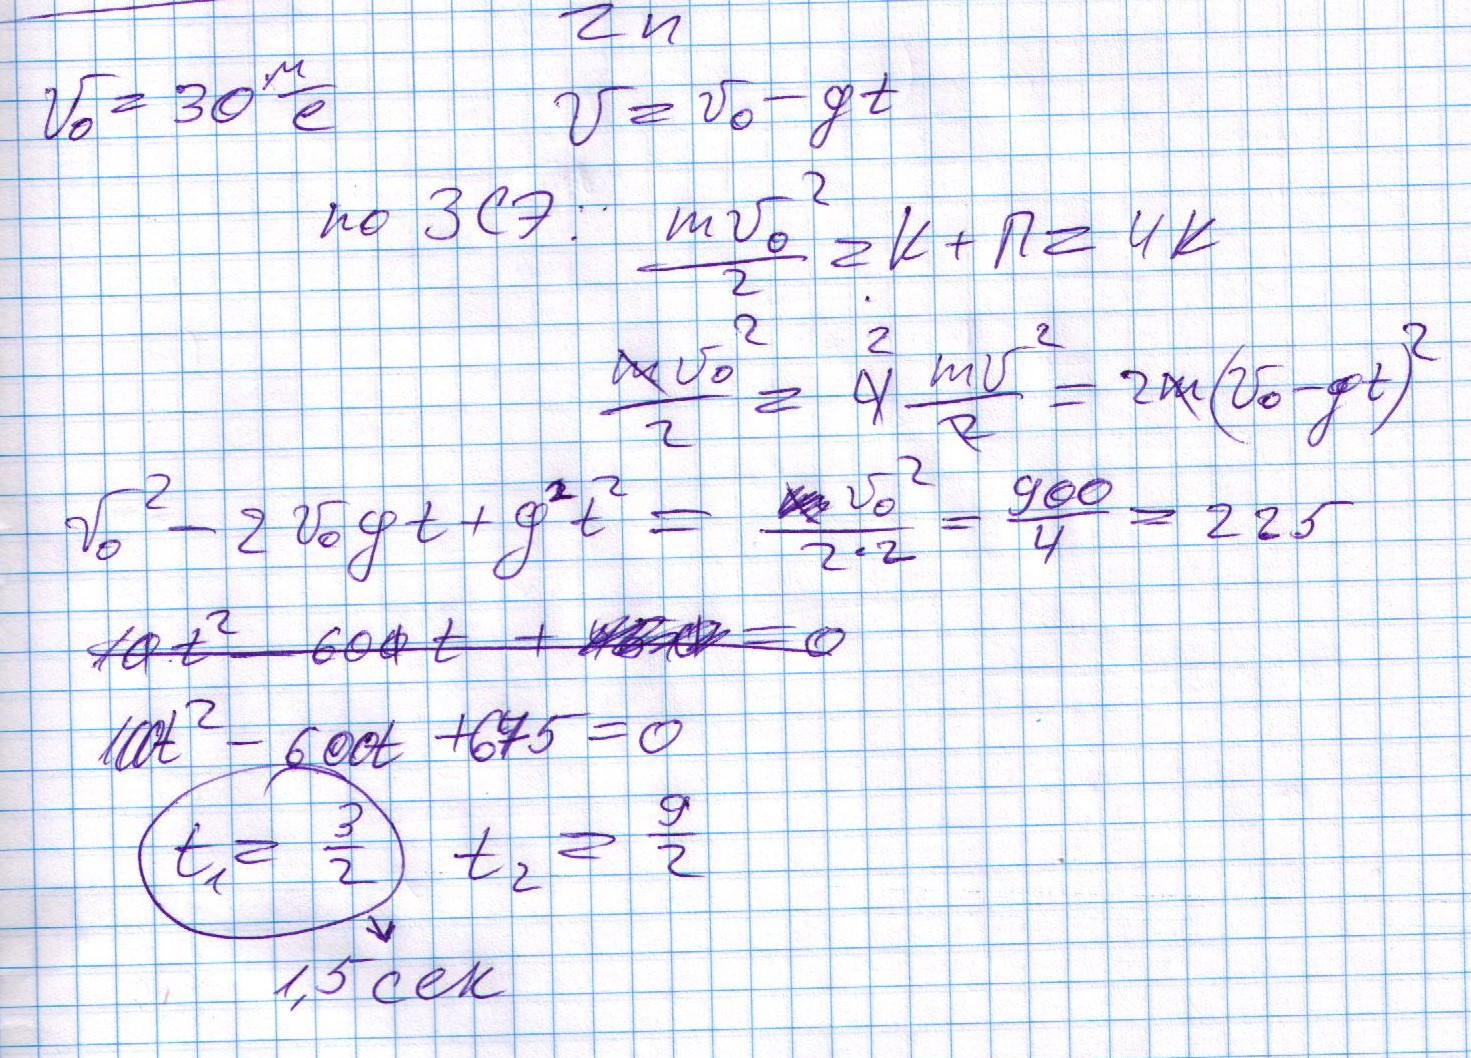 2п
v₀ = 30 м/с v = v₀ - gt
по ЗСЭ: mv₀²/2 = K + П = 4K
mv₀²/2 = 4 2 mv²/2 = 2m(v₀ - gt)²
v₀² - 2v₀gt + g²t² = v₀²/2·2 = 900/4 = 225
10t² - 600t + = 0
100t² - 600t + 675 = 0
t₁ = 3/2 t₂ = 9/2
1,5 сек